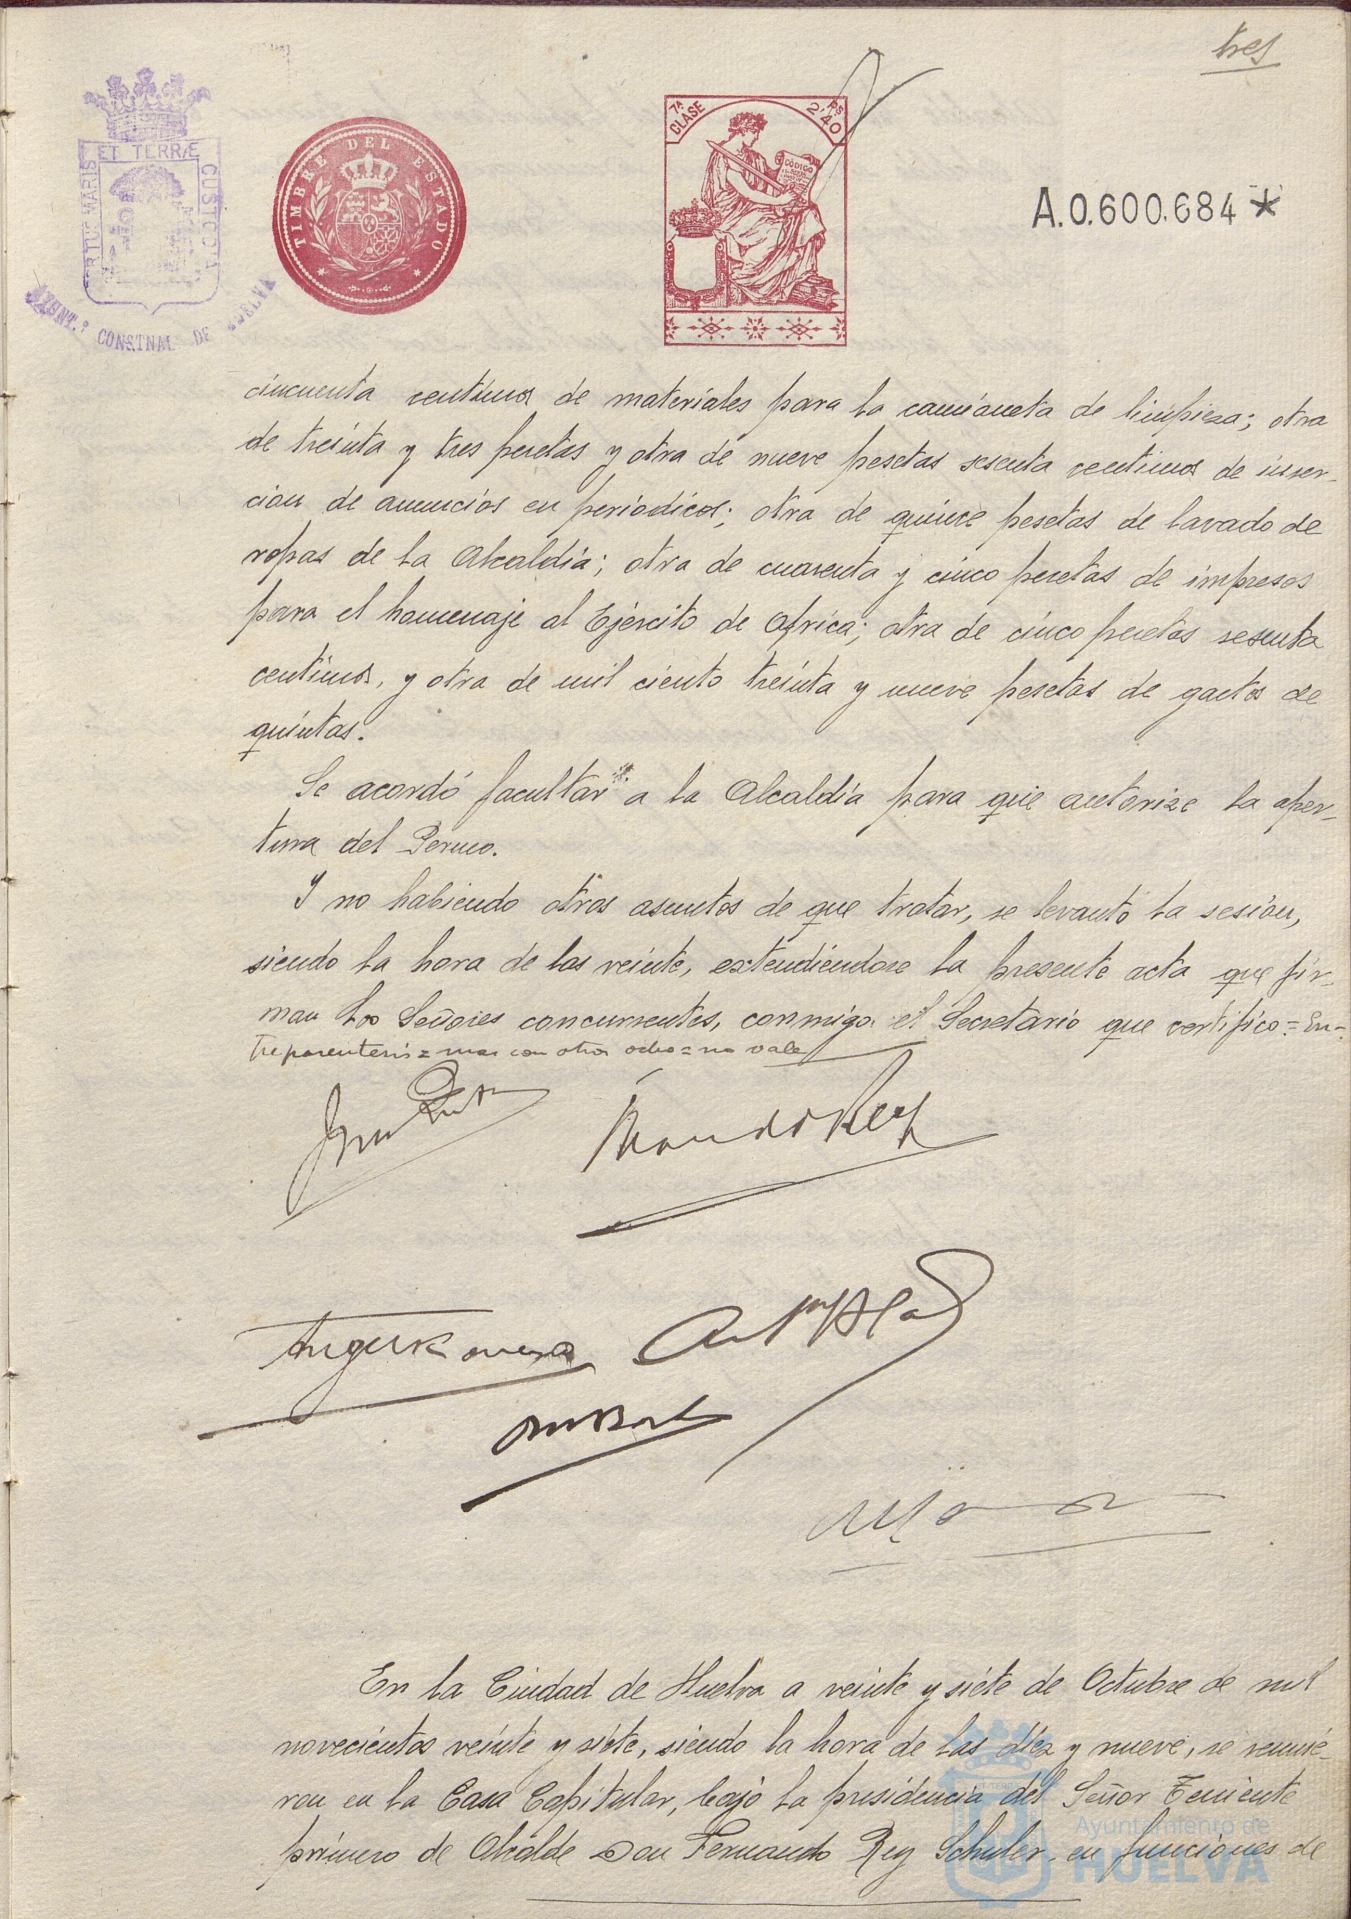 tres
ET TERRÆ
MARIS
CUSTODIA
AYUNT.º CONSTNAL DE HUELVA
TIMBRE DEL ESTADO
7ª CLASE
2'40 PS
CODIGO
A.0.600.684 *
cincuenta centimos de materiales para la camioneta de limpieza; otra
de treinta y tres pesetas y otra de nueve pesetas sesenta centimos de inser-
cion de anuncios en periodicos; otra de quince pesetas de lavado de
ropas de la Alcaldía; otra de cuarenta y cinco pesetas de impresos
para el homenaje al Ejército de Africa; otra de cinco pesetas sesenta
centimos, y otra de mil ciento treinta y nueve pesetas de gastos de
quintas.
Se acordó facultar a la Alcaldía para que autorize la aper-
tura del
Y no habiendo otros asuntos de que tratar, se levantó la sesion,
siendo la hora de las veinte, extendiéndose la presente acta que fir-
man los Señores concurrentes, conmigo el Secretario que certifico.=En-
treparentesis= mas con otros ocho=no vale
En la Ciudad de Huelva a veinte y siete de Octubre de mil
novecientos veinte y siete, siendo la hora de las diez y nueve, se reunie-
ron en la Casa Capitular, bajo la presidencia del Señor Teniente
primero de Alcalde Don Fernando Rey Schuler, en funciones de
Ayuntamiento de
HUELVA